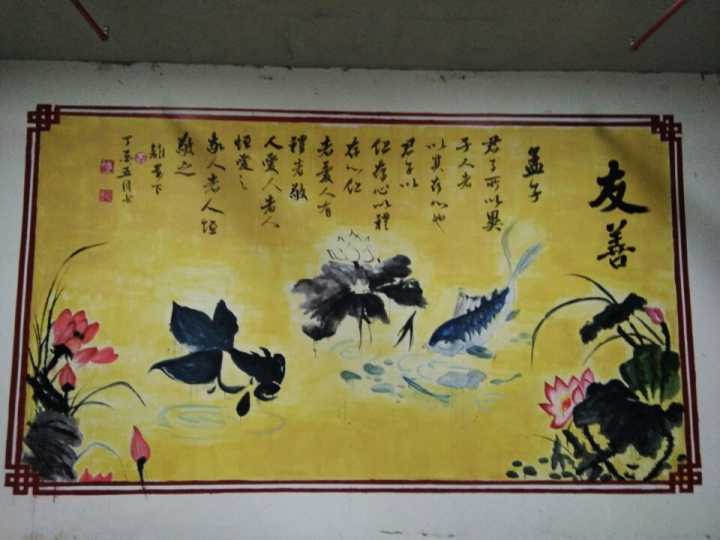 友善
孟子
君子所以異
于人者
以其存心也
君子以
仁存心以禮
存心仁
者愛人有
禮者敬
人愛人者人
恒愛之
敬人者人恒
敬之
丁酉五月